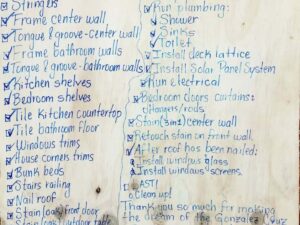 Stringers
Frame center wall
Tongue & groove-center wall
Frame bathroom walls
Tongue & groove-bathroom walls
Kitchen shelves
Bedroom shelves
Tile Kitchen countertop
Tile bathroom floor
Windows trims
House corners trims
Bunk beds
Stairs railing
Nail roof
Stain/oak front door
Run plumbing:
Shower
Sinks
Toilet
Install deck lattice
Install Solar Panel System
Run electrical
Bedroom doors curtains:
Hangers/rods
Stain (3in1) center wall
Retouch stain on front wall
After roof has been nailed:
Install windows glass
Install windows screens
LAST!
Clean up!
Thank you so much for making
the dream of the Gonzalez